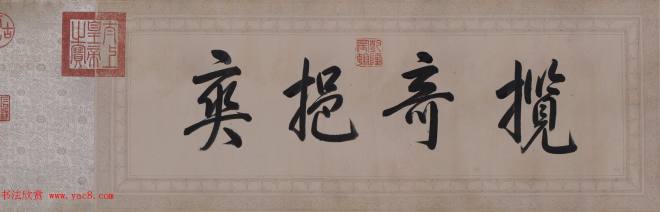 攬竒挹爽
太上皇帝之寶
书法欣赏 www.yac8.com